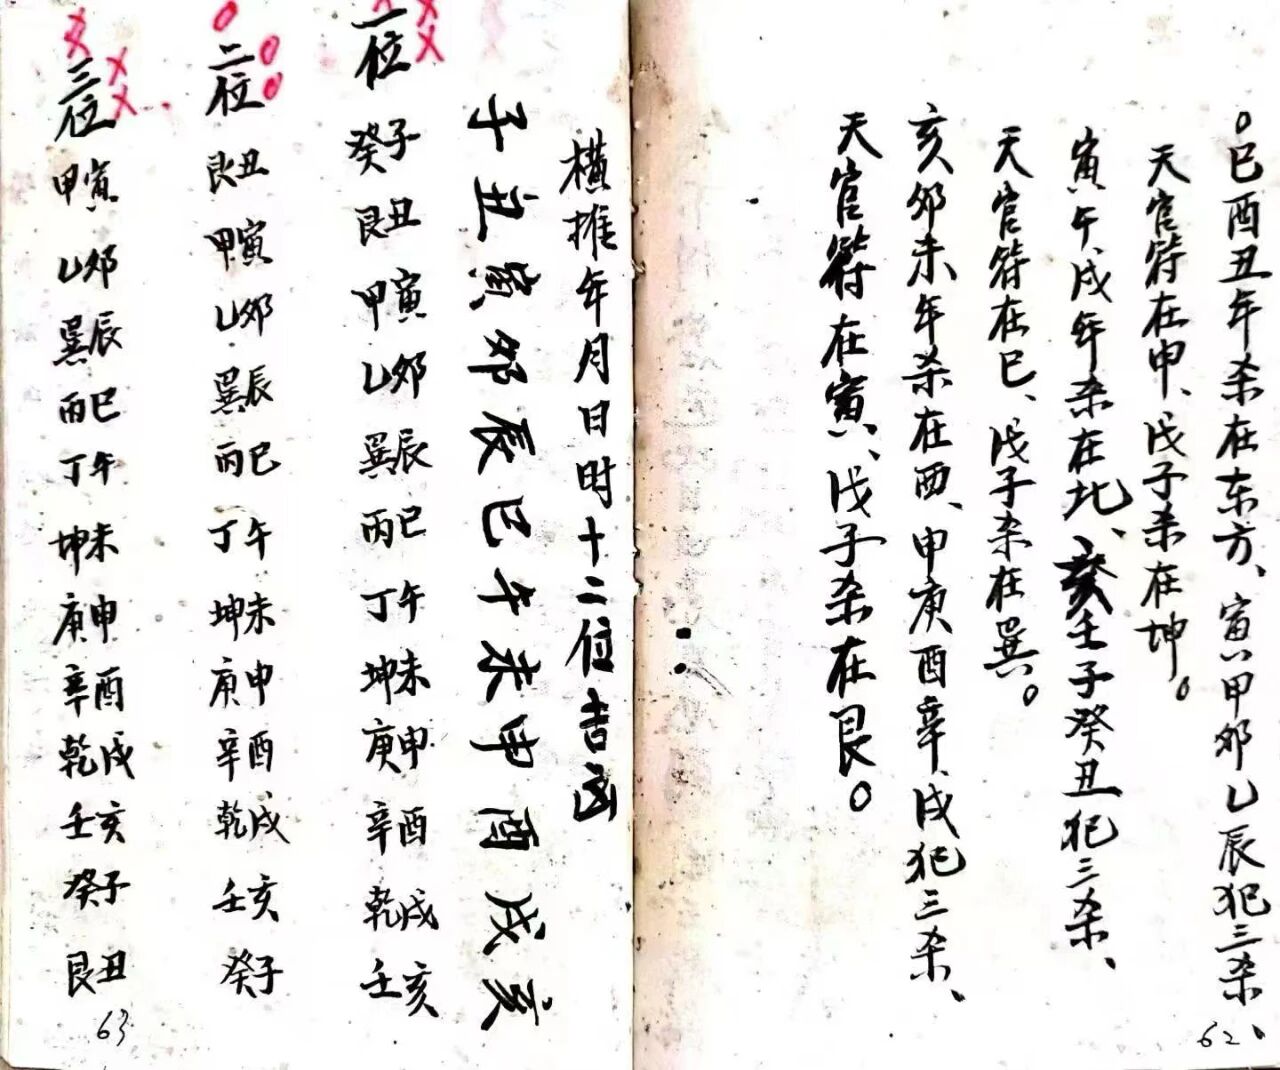 。巳酉丑年杀在东方、寅甲卯乙辰犯三杀
天官符在申、戊子杀在坤。
寅午戌年杀在北、亥壬子癸丑犯三杀、
天官符在巳、戊子杀在巽。
亥卯未年杀在西、申庚酉辛戌犯三杀、
天官符在寅、戊子杀在艮。
62
横推年月日时十二位吉凶
子丑寅卯辰巳午未申酉戌亥
一位 癸子 艮丑 甲寅 乙卯 巽辰 丙巳 丁午 坤未 庚申 辛酉 乾戌 壬亥
二位 艮丑 甲寅 乙卯 巽辰 丙巳 丁午 坤未 庚申 辛酉 乾戌 壬亥 癸子
三位 甲寅 乙卯 巽辰 丙巳 丁午 坤未 庚申 辛酉 乾戌 壬亥 癸子 艮丑
63